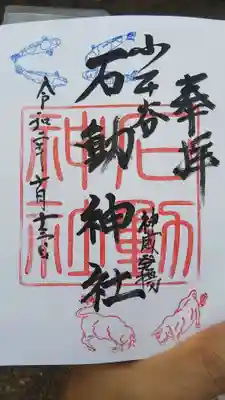 奉拝
小千谷
石動神社
神威発揚
令和二年 六月十三日
石動
神社